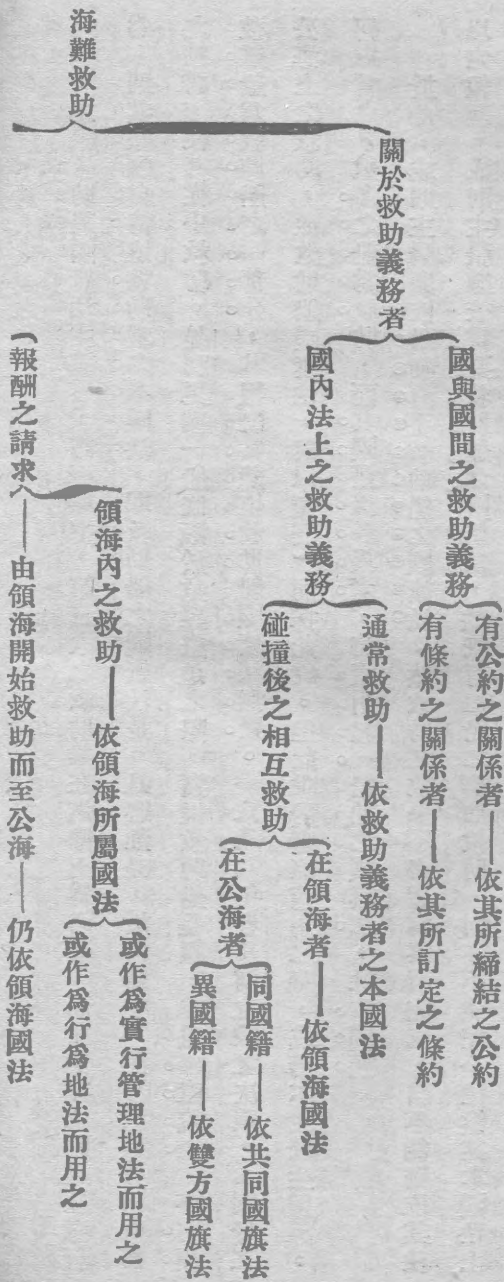 海難救助
關於救助義務者
國與國間之救助義務
有公約之關係者——依其所締結之公約
有條約之關係者——依其所訂定之條約
國內法上之救助義務
通常救助——依救助義務者之本國法
碰撞後之相互救助
在領海者——依領海國法
在公海者
同國籍——依共同國旗法
異國籍——依雙方國旗法
報酬之請求
領海內之救助——依領海所屬國法
或作爲實行管理地法而用之
或作爲行爲地法而用之
——由領海開始救助而至公海——仍依領海國法